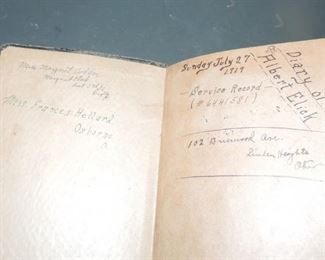 Miss Margaret
Miss Frances Holland
Osborne
O.
Sunday July 27-
1919
Diary of
Albert Elick
- Service Record -
(# 6441581)
" "
102 Brierwood Ave.
Linden Heights
Ohio